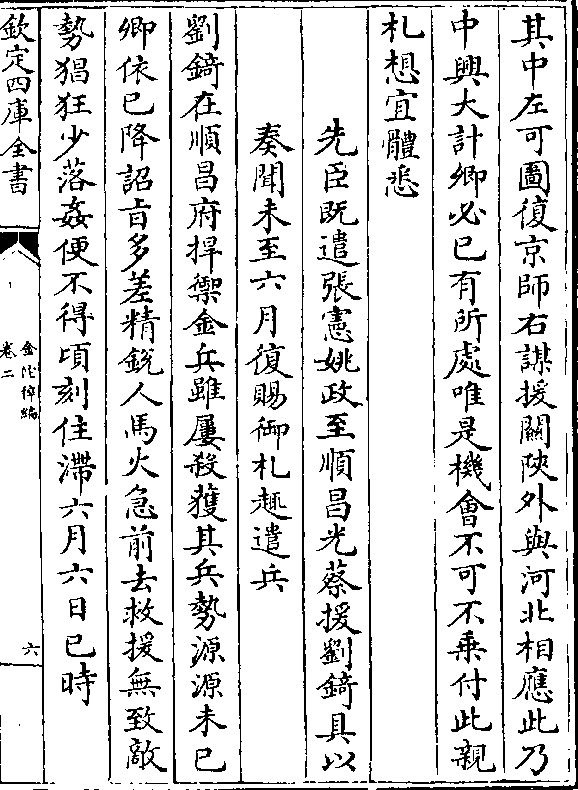 其中左可圖復京師右謀援關陝外與河北相應此乃
中興大計卿必已有所處唯是機會不可不乗付此親
札想宜體悉
先臣既遣張憲姚政至順昌光蔡援劉錡具以
奏聞未至六月復賜御札趣遣兵
劉錡在順昌府捍禦金兵雖屢殺獲其兵勢源源未已
卿依已降詔㫖多差精銳人馬火急前去救援無致敵
勢猖狂少落姦便不得頃刻住滯六月六日巳時
欽定四庫全書
金佗稡編
卷二
六